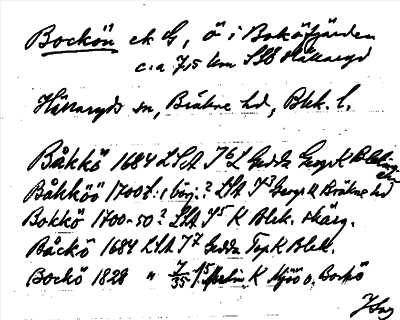 Bockön ek G, ö i Boköfjärden
c:a 7,5 km SSO Hällaryd
Hällaryds sn, Bräkne hd, Blek. l.
Båkkö 1684 LSA J⁶ L Gedda Geogr K Bleking
Båkköö 1700t. i börj.? LSA J⁴3 Geogr K Bräkne hd
Bokkö 1700-50? LSA J⁵ K Blek. skärg.
Båckö 1684 LSA J⁷ Gedda Top K Blek.
Bockö 1828 " 7/35 K Mjöö o. Bockö